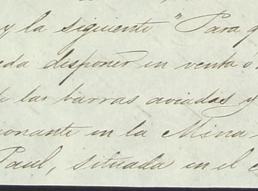 y la siguiente "Para q
da disponer en venta o
de las barras aviadas y
ionante en la Mina
Paul, situada en el